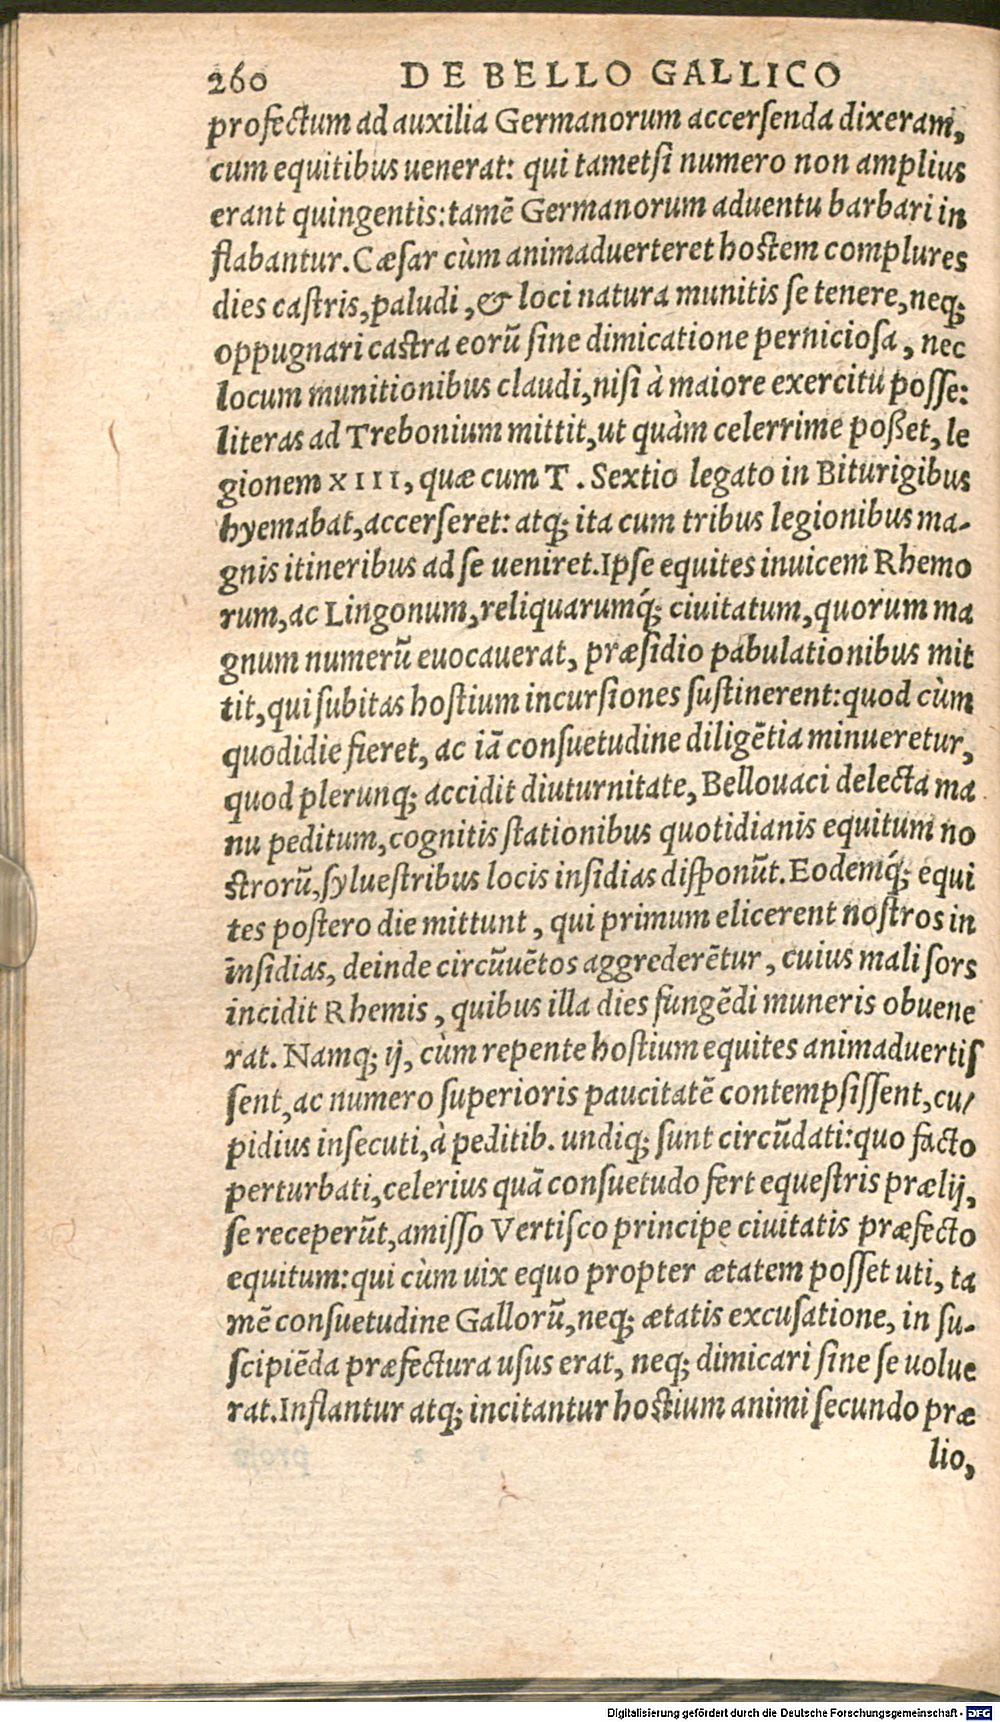 260 DE BELLO GALLICO
profectum ad auxilia Germanorum accerſenda dixeram,
cum equitibus uenerat: qui tametſi numero non amplius
erant quingentis:tamē Germanorum aduentu barbari in
flabantur.Cæſar cùm animaduerteret hoſtem complures
dies caſtris,paludi,& loci natura munitis ſe tenere,neq;
oppugnari caſtra eorū ſine dimicatione pernicioſa, nec
locum munitionibus claudi,niſi à maiore exercitu poſſe:
literas ad Trebonium mittit,ut quàm celerrime poßet, le
gionem XIII, quæ cum T. Sextio legato in Biturigibus
hyemabat,accerſeret: atq; ita cum tribus legionibus ma-
gnis itineribus ad ſe ueniret.Ipſe equites inuicem Rhemo
rum,ac Lingonum,reliquarumq́; ciuitatum,quorum ma
gnum numerū euocauerat, præſidio pabulationibus mit
tit,qui ſubitas hoſtium incurſiones ſuſtinerent:quod cùm
quodidie fieret, ac iā conſuetudine diligētia minueretur,
quod plerunq; accidit diuturnitate, Bellouaci delecta ma
nu peditum,cognitis ſtationibus quotidianis equitum no
ſtrorū,ſylueſtribus locis inſidias diſponūt.Eodemq́; equi
tes poſtero die mittunt, qui primum elicerent noſtros in
inſidias, deinde circūuētos aggrederētur, cuius mali ſors
incidit Rhemis, quibus illa dies fungēdi muneris obuene
rat. Namq; ij, cùm repente hoſtium equites animaduertiſ
ſent,ac numero ſuperioris paucitatē contempſiſſent,cu/
pidius inſecuti,à peditib. undiq; ſunt circūdati:quo facto
perturbati,celerius quā conſuetudo fert equeſtris prælij,
ſe receperūt,amiſſo Vertiſco principe ciuitatis præfecto
equitum:qui cùm uix equo propter ætatem poſſet uti, ta
mē conſuetudine Gallorū,neq; ætatis excuſatione, in ſu-
ſcipiēda præfectura uſus erat, neq; dimicari ſine ſe uolue
rat.Inflantur atq; incitantur hoſtium animi ſecundo præ
lio,
Digitalisierung gefördert durch die Deutsche Forschungsgemeinschaft - DFG